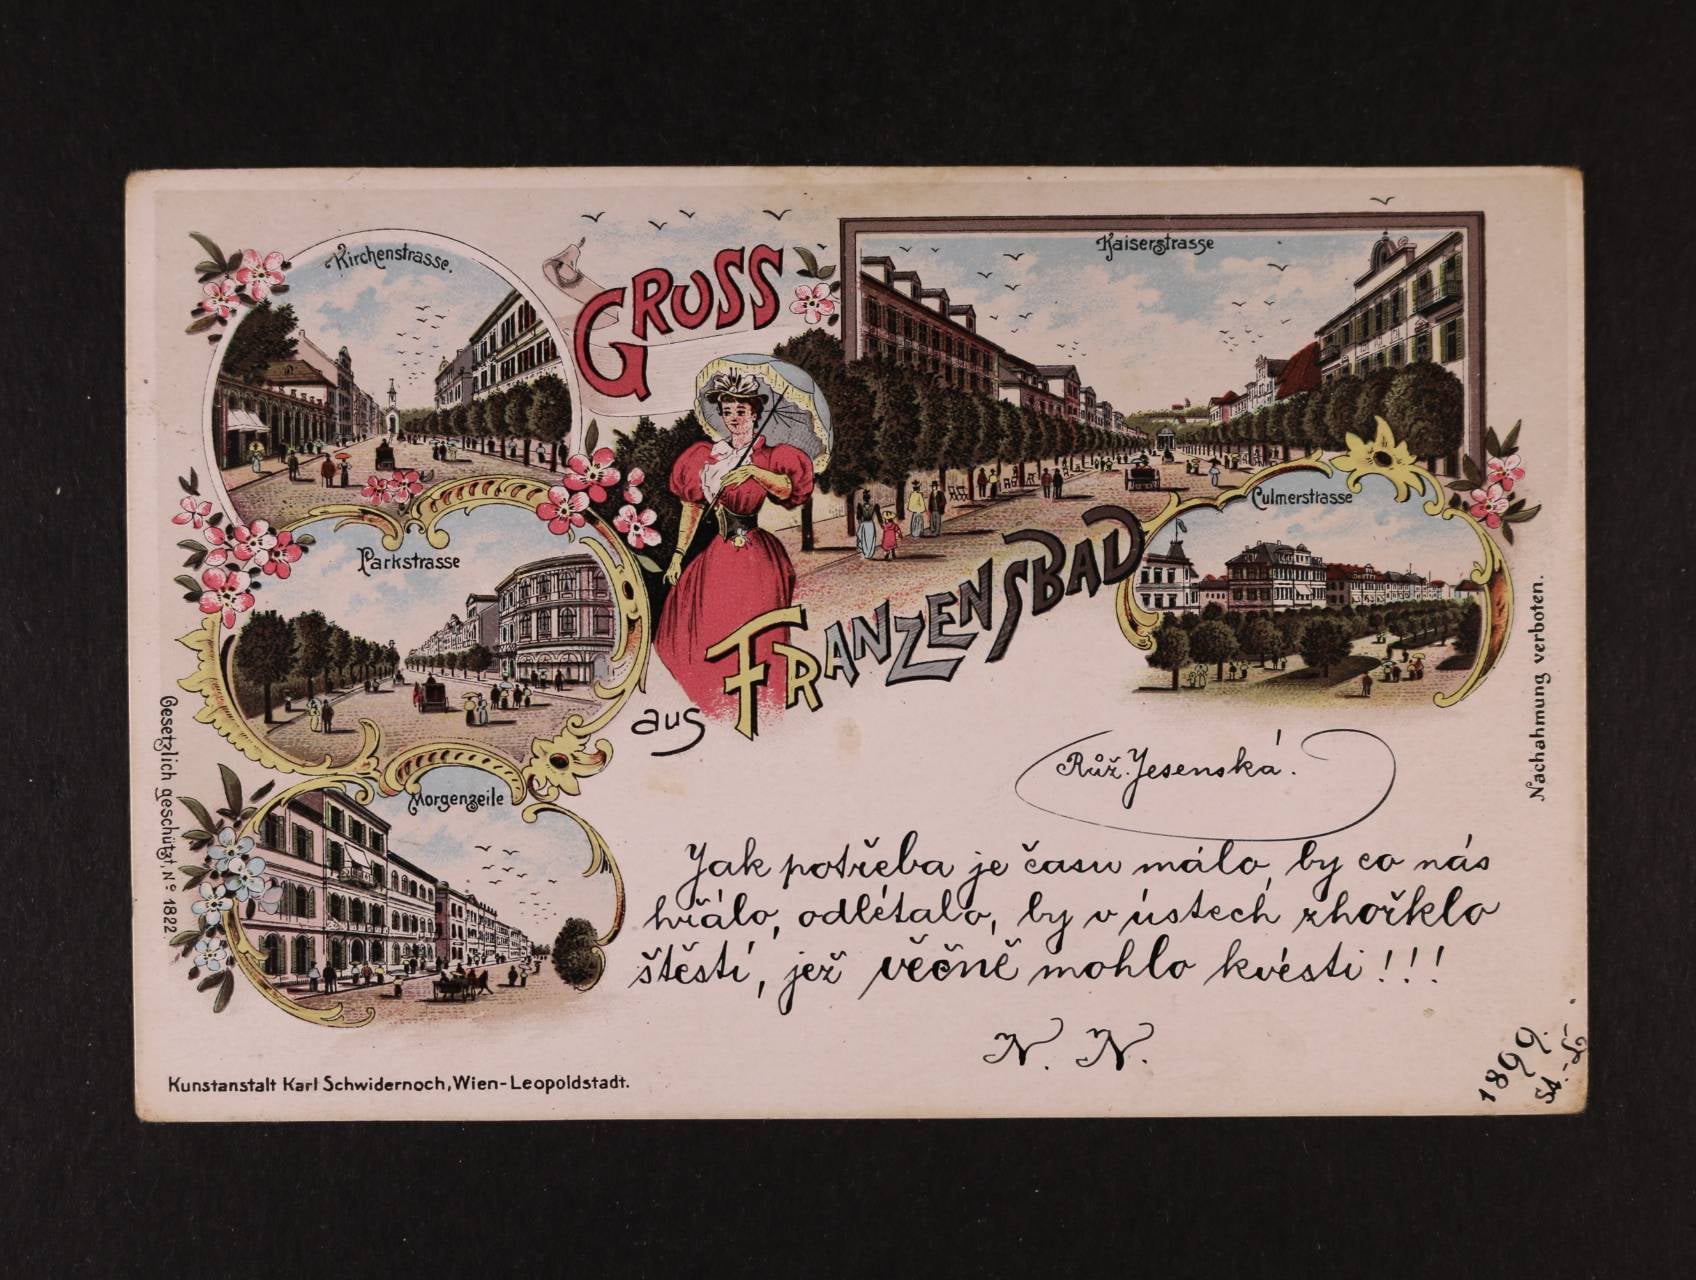 Kirchenstrasse.
GRUSS
Kaiserstrasse
Culmerstrasse
Parkstrasse
aus FRANZENSBAD
Morgenzeile
Gesetzlich geschützt, No 1822
Nachahmung verboten.
Růž. Jesenská.
Jak potřeba je času málo, by co nás
hřálo, odlétalo, by v ústech zhořklo
štěstí, jež věčně mohlo kvésti!!!
N. N.
1899.
Kunstanstalt Karl Schwidernoch, Wien-Leopoldstadt.